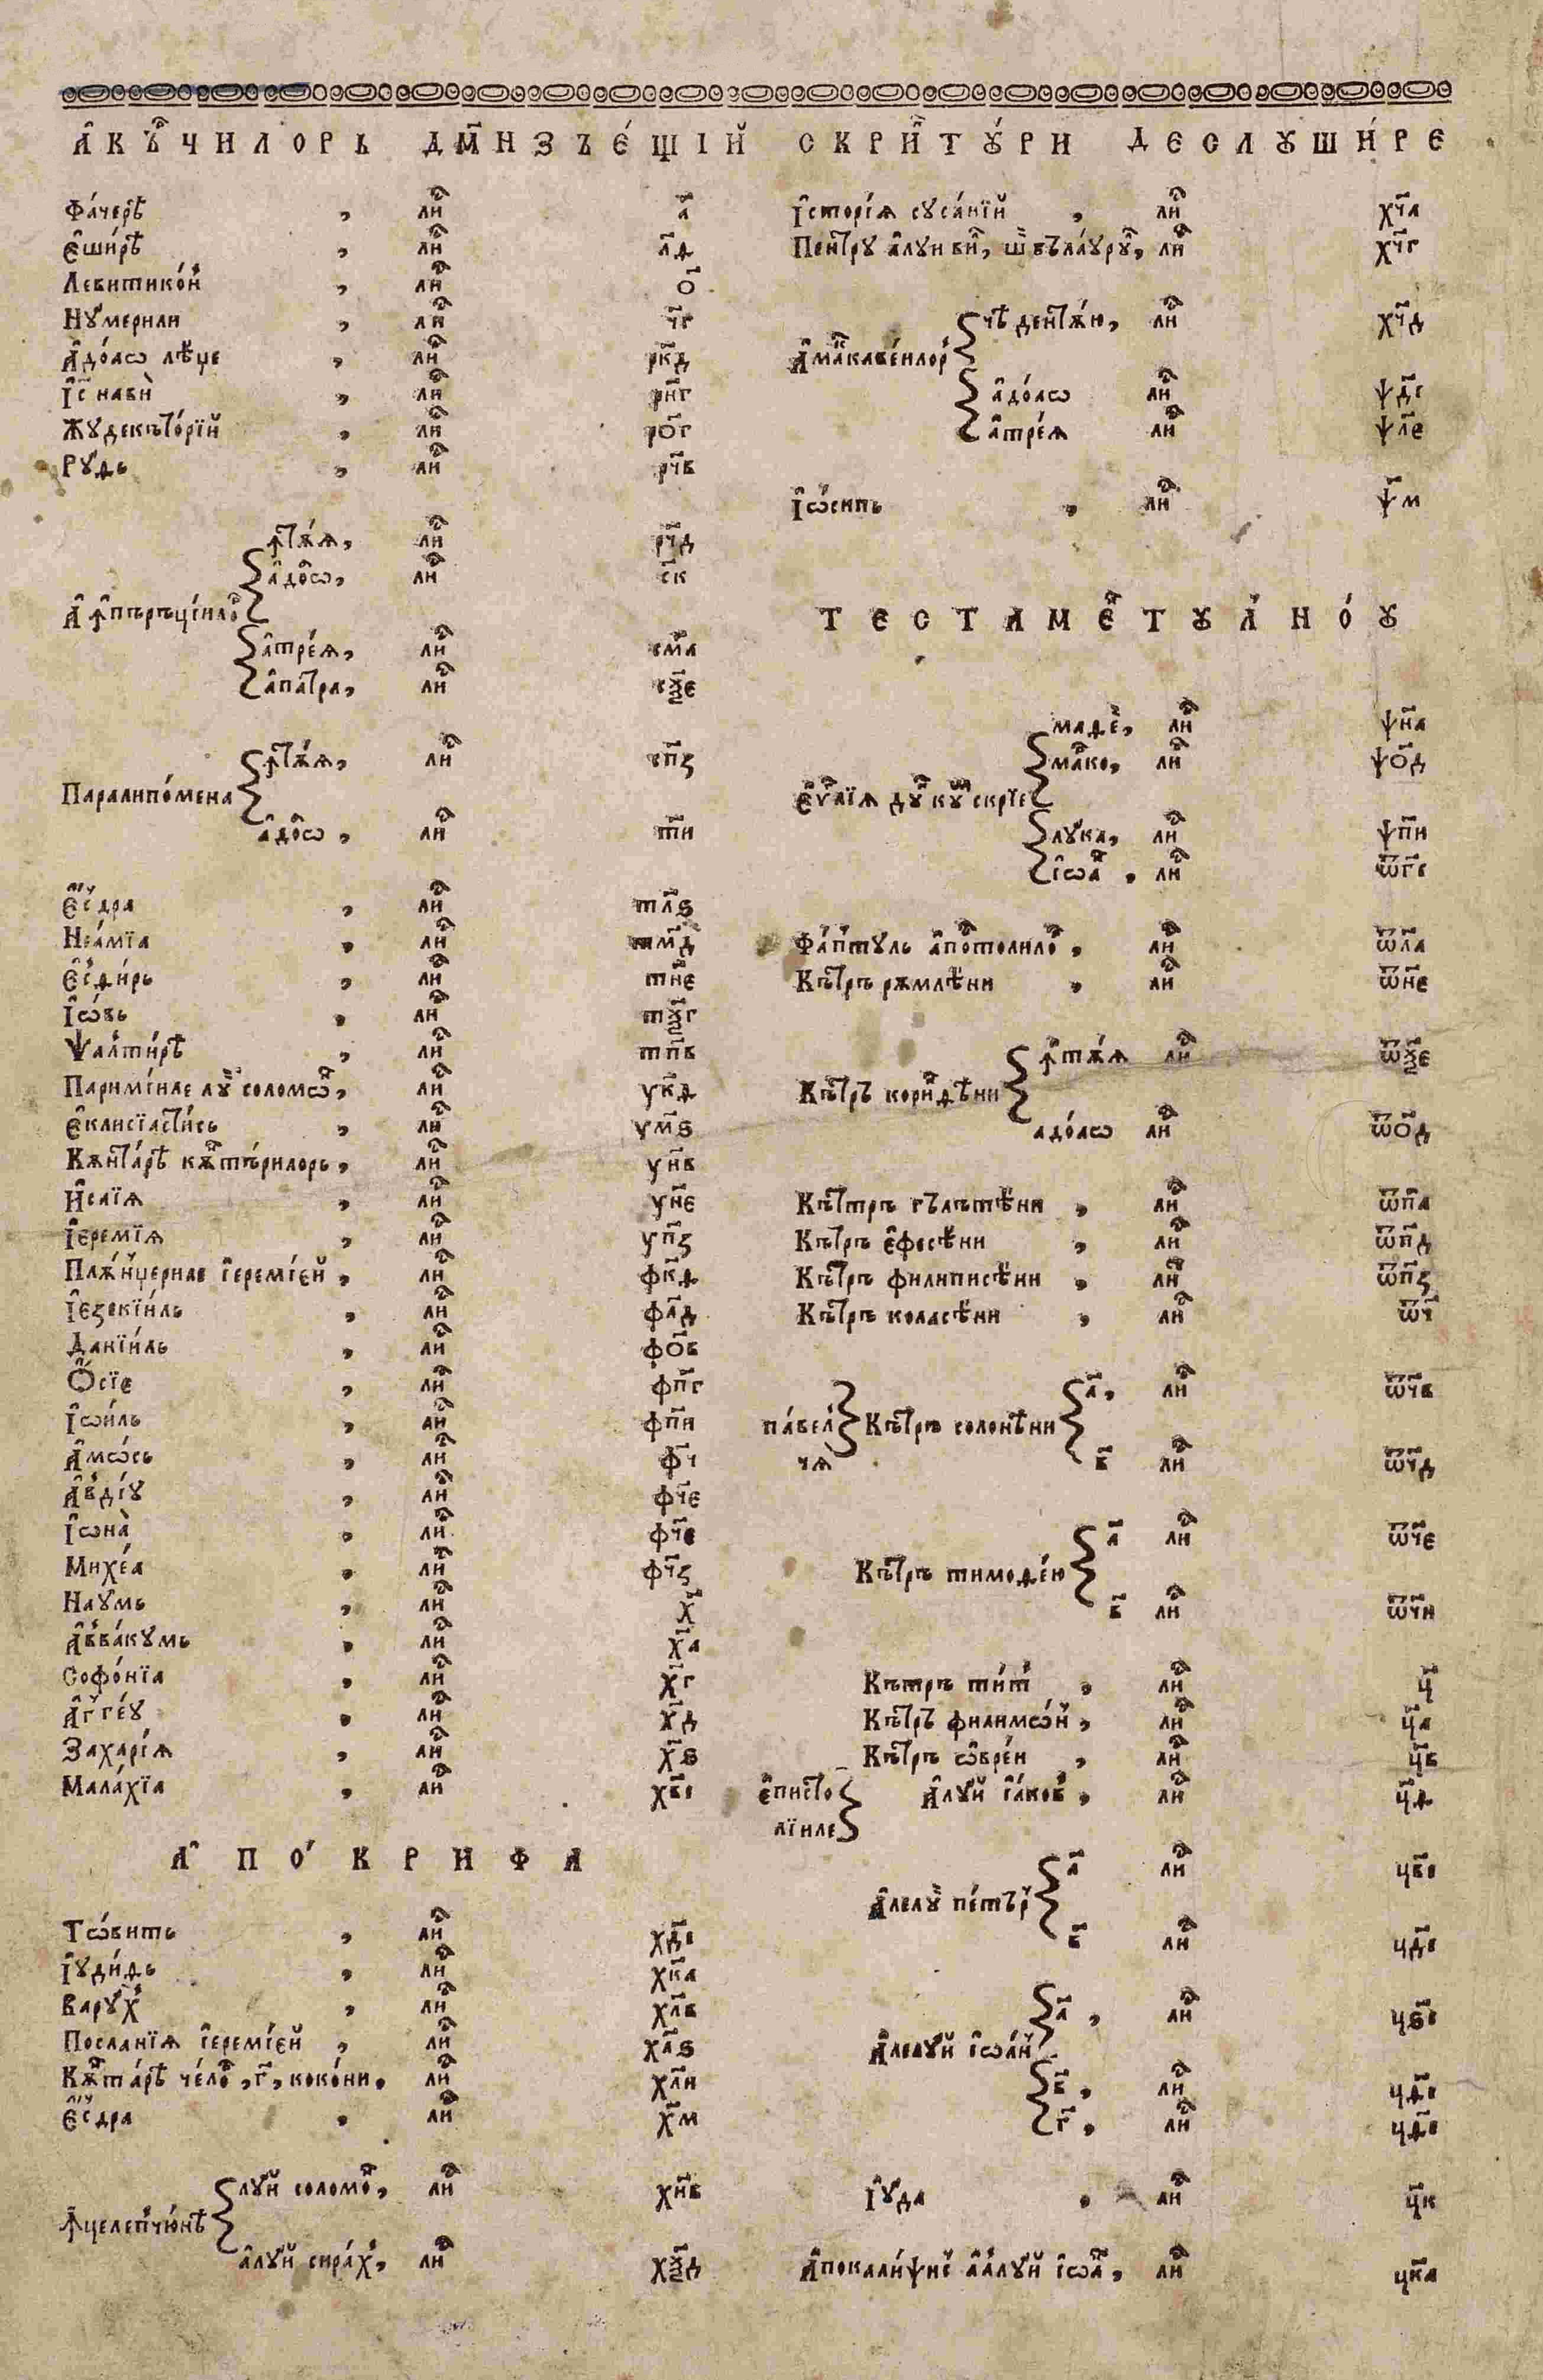 А҆КЪ҆РЧИЛОРЬ ДꙊМНЗЪЕ́ЩІЙ СКРИПТꙊ́РИ ДЄСЛꙊШИ́РЄ
Фа́черѣ , лис а҃
Є҆ши́рѣ , лис л҃д
Левитико́н , лис о҃
Нꙋмерили , лис ч҃г
А҆до́асѡ лѣ́џе , лис рк҃д
І҆с нави̏ , лис рн҃г
Жꙋдекътѡ́рїй , лис ро҃г
Рꙋ́ѳь , лис рч҃в
А҆ ꙟ҆пъръці́илор
ꙟ҆тѫ́ѧ , лис рч҃д
а҆до́сѡ , лис с҃к
а҆тре́ѧ , лис см҃а
а҆па́тра , лис сѯ҃є
Паралипо́мена
ꙟ҆тѫ́ѧ , лис сп҃з
а҆до́сѡ , лис т҃и
Є҆́здра , лис тл҃ѕ
Неа́мїа , лис тм҃д
Є҆сѳи́рь , лис тн҃є
І҆ѡ́вь , лис тѯ҃г
Ѱалти́рѣ , лис тп҃в
Парими́иле лꙋ соломѡ́н , лис ук҃д
Є҆клисїасти́сь , лис ум҃ѕ
Кѫнта́рѣ кѫнтъ́рилорь , лис ун҃в
И҆са́їѧ , лис ун҃є
І҆еремі́ѧ , лис уп҃з
Плѫ́нџериле і҆еремі́єй , лис фк҃д
І҆езекїи́ль , лис фл҃д
Данїи́ль , лис фо҃в
Ѻ҆сїе , лис фп҃г
І҆ѡи́ль , лис фп҃и
А҆мѡ́сь , лис ф҃ч
А҆вді́ꙋ , лис фч҃є
І҆ѡна̀ , лис фч҃є
Михе́а , лис фч҃з
Наꙋмь , лис х҃
А҆вва́кꙋмь , лис х҃а
Софо́нїа , лис х҃г
А҆гге́ꙋ , лис х҃д
Захарі́ѧ , лис х҃ѕ
Мала́хїа , лис хв҃і
А҆ П О́ К Р И Ф А
Тѡ́вить , лис хд҃і
І҆ꙋди́ѳь , лис хк҃а
Варꙋ́х , лис хл҃в
Посланїѧ і҆еремі́єй , лис хл҃ѕ
Кѫнта́рѣ че́лор , г҃ , коко́ни , лис хл҃и
Є҆́здра , лис х҃м
ꙟ҆целепчю́нѣ
лꙋй соломо́н , лис хн҃в
а҆лꙋй сира́х , лис хѯ҃д
І҆сторі́ѧ сꙋса́нїй , лис хч҃а
Пентрꙋ а҆лꙋн вил , шѝ въла́ꙋрꙋл , лис хч҃г
А҆макаве́илор
чѣ дентѫ́ю , лис хч҃д
а҆до́асѡ лис ѱд҃і
а҆тре́ѧ лис ѱл҃є
І҆ѡ́сипь , лис ѱ҃м
ТЕСТАМЕ҆́НТꙊЛ НО́Ꙋ
Є҆ѵлїѧ дꙋпъ кꙋм скрїе
маѳе̏ , лис ѱн҃а
ма́рко , лис ѱо҃д
лꙋ́ка , лис ѱп҃и
і҆ѡа́н , лис ѿг҃і
Фа́птꙋль а҆по́столилор , лис ѿл҃а
Кътръ рѫмлѣ́ни , лис ѿн҃є
Кътръ коринѳѣ́ни
ꙟ҆тѫ́ѧ лис ѿѯ҃є
адо́асѡ лис ѿо҃д
Кътръ гълътѣ́ни , лис ѿп҃а
Кътръ є҆фесѣ́ни , лис ѿп҃д
Кътръ филиписѣ́ни , лис ѿп҃з
Кътръ коласѣ́ни , лис ѿ҃ч
па́вел чѧ
Кътръ солонѣ́ни
а҃ , лис ѿч҃в
в҃ лис ѿч҃д
Кътръ тимоѳе́ю
а҃ лис ѿч҃є
в҃ лис ѿч҃и
Кътръ ти́т , лис ц҃
Кътръ филимѡ́н , лис ц҃а
Кътръ ѡ҆вре́и , лис ц҃в
є҆писто лїиле
А҆лꙋй і҆а́ков , лис ц҃ѳ
А҆лелꙋй пе́тър
а҃ лис цв҃і
в҃ лис цд҃і
А҆лелꙋй і҆ѡа́н
а҃ , лис цѕ҃і
в҃ , лис цѳ҃і
г҃ , лис цѳ҃і
І҆ꙋ́да , лис ц҃к
А҆покали́ѱис а҆а́лꙋй і҆ѡа́н , лис цк҃а